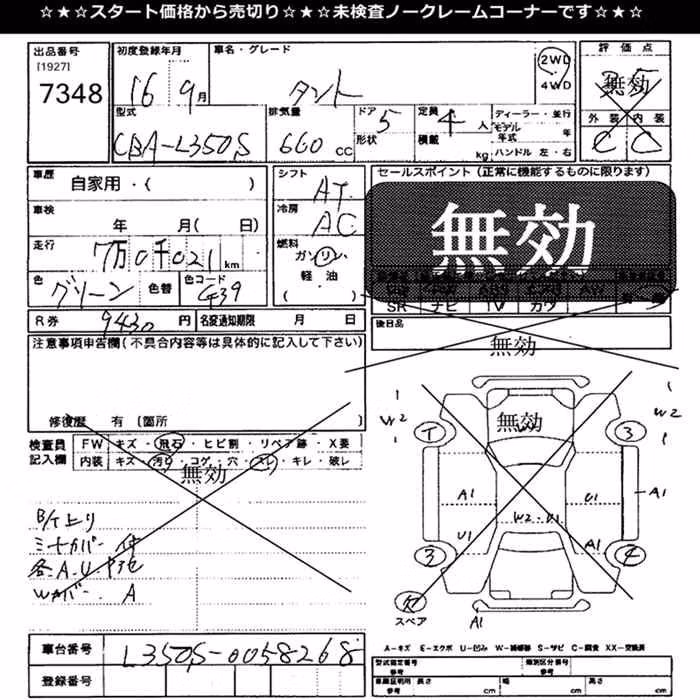 ☆★☆★スタート価格から売切り☆★☆★未検査ノークレームコーナーです☆★☆
出品番号 初度登録年月 車名・グレード 評価点
[1927]
7348 16 9月 タント 2WD 4WD 無効
外装 内装
型式 排気量 ドア 5 定員 4人 ディーラー・並行
CBA-L350S 660cc 形状 積載 kg モデル年式 年
ハンドル 左・右 C C
車歴 自家用・( ) シフト AT セールスポイント (正常に機能するものに限ります)
車検 年 月( 日) 冷房 AC 無効
走行 7万0千021km 燃料 ガソリン
色 グリーン 色替 色コード G39 軽油
( ) SR ナビ TV カワ
R券 9430円 名変通知期限 月 日 後日品
注意事項申告欄(不具合内容等は具体的に記入して下さい) 無効
修復歴 有 〔箇所 〕
検査員記入欄 FW キズ・飛石・ヒビ割・リペア跡・X要
内装 キズ・汚れ・コゲ・穴・スレ・キレ・破レ
無効
無効
W2 W2
3
A1 U1 A1
W2・U1
U1 A1
3 4
スペア
A1
B/T上り
ミラーカバー
各A.U
A
車台番号 L350S-0058268
登録番号
A-キズ E-エクボ U-凹み W-補修跡 S-サビ C-腐食 XX-交換済
型式指定番号 参考 類別区分番号 参考
車庫証明用 参考 長さ cm 幅 cm 高さ cm